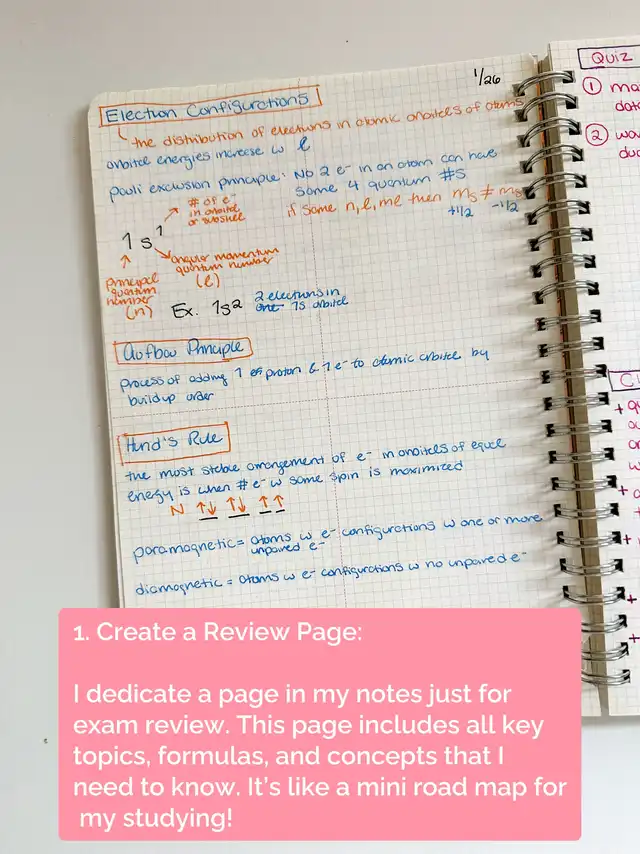 1/26
Election Configurations
the distribution of elections in atomic orbitels of atoms
orbitel energies increase w l
pauli exclusion principle: No 2 e⁻ in an atom can have
same 4 quantum #s
if same n, l, ml then ms ≠ ms
+1/2 -1/2
# of e⁻
in orbitel
or subshell
1s¹
angular momentum
quantum number
(l)
principal
quantum
number
(n)
Ex. 1s² 2 elections in
one 1s orbitel
Aufbau Principle
process of adding 1 proton & 1 e⁻ to atomic orbitel by
buildup order
Hund's Rule
the most stable arrangement of e⁻ in orbitels of equel
energy is when # e⁻ w same spin is maximized
N ↑↓ ↑↓ ↑↑
paramagnetic = atoms w e⁻ configurations w one or more
unpaired e⁻
diamagnetic = atoms w e⁻ configurations w no unpaired e⁻
Quiz
1
2
1. Create a Review Page:
I dedicate a page in my notes just for
exam review. This page includes all key
topics, formulas, and concepts that I
need to know. It's like a mini road map for
my studying!